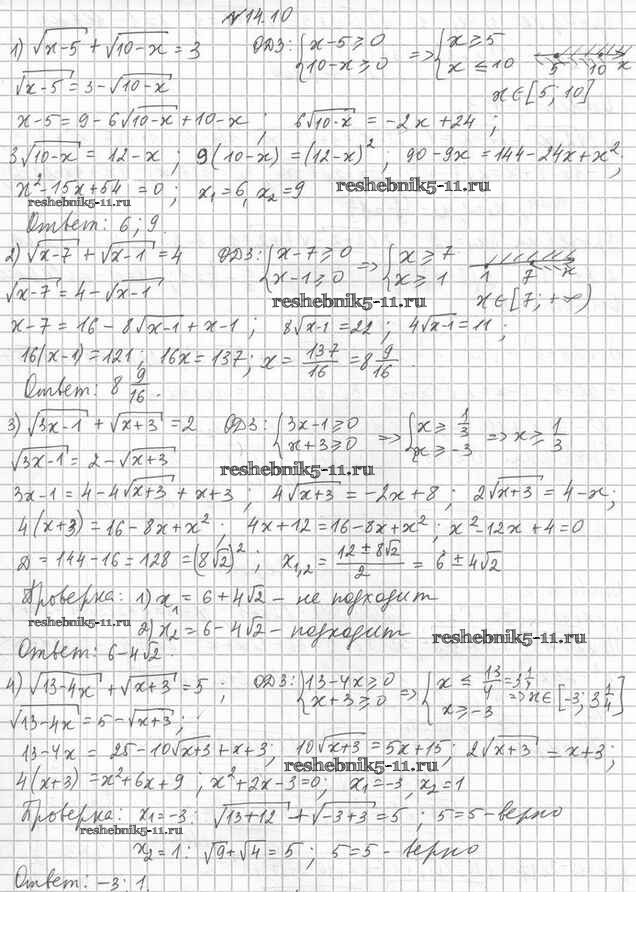 №14.10
1) √(x-5) + √(10-x) = 3 ОДЗ: {x-5≥0 10-x≥0 => {x≥5 x≤10 5 10 x
√(x-5) = 3-√(10-x) x∈[5; 10]
x-5 = 9-6√(10-x)+10-x ; 6√(10-x) = -2x+24 ;
3√(10-x) = 12-x ; 9(10-x) = (12-x)² , 90-9x = 144-24x+x² ;
x²-15x+54 = 0 ; x₁=6, x₂=9 reshebnik5-11.ru
reshebnik5-11.ru
Ответ: 6 ; 9.
2) √(x-7) + √(x-1) = 4 ОДЗ: {x-7≥0 x-1≥0 => {x≥7 x≥1 1 7 x
√(x-7) = 4-√(x-1) reshebnik5-11.ru x∈[7; +∞)
x-7 = 16-8√(x-1)+x-1 ; 8√(x-1) = 22 ; 4√(x-1) = 11 ;
16(x-1) = 121 ; 16x = 137 ; x = 137/16 = 8 9/16 .
Ответ: 8 9/16 .
3) √(3x-1) + √(x+3) = 2 ОДЗ: {3x-1≥0 x+3≥0 => {x≥1/3 x≥-3 => x≥1/3
√(3x-1) = 2-√(x+3) reshebnik5-11.ru
3x-1 = 4-4√(x+3)+x+3 ; 4√(x+3) = -2x+8 ; 2√(x+3) = 4-x ;
4(x+3) = 16-8x+x² ; 4x+12 = 16-8x+x² ; x²-12x+4 = 0
D = 144-16 = 128 = (8√2)² ; x₁,₂ = (12±8√2)/2 = 6±4√2
Проверка: 1) x₁ = 6+4√2 - не подходит
reshebnik5-11.ru
2) x₂ = 6-4√2 - подходит reshebnik5-11.ru
Ответ: 6-4√2 .
4) √(13-4x) + √(x+3) = 5 ; ОДЗ: {13-4x≥0 x+3≥0 => {x≤13/4=3 1/4 x≥-3 => x∈[-3; 3 1/4]
√(13-4x) = 5-√(x+3) ;
13-4x = 25-10√(x+3)+x+3 ; 10√(x+3) = 5x+15 ; 2√(x+3) = x+3 ;
4(x+3) = x²+6x+9 ; x²+2x-3=0 ; x₁=-3, x₂=1 reshebnik5-11.ru
Проверка: x₁=-3: √(13+12) + √(-3+3) = 5 ; 5=5 - верно
reshebnik5-11.ru
x₂=1: √9+√4 = 5 ; 5=5 - верно
Ответ: -3; 1.